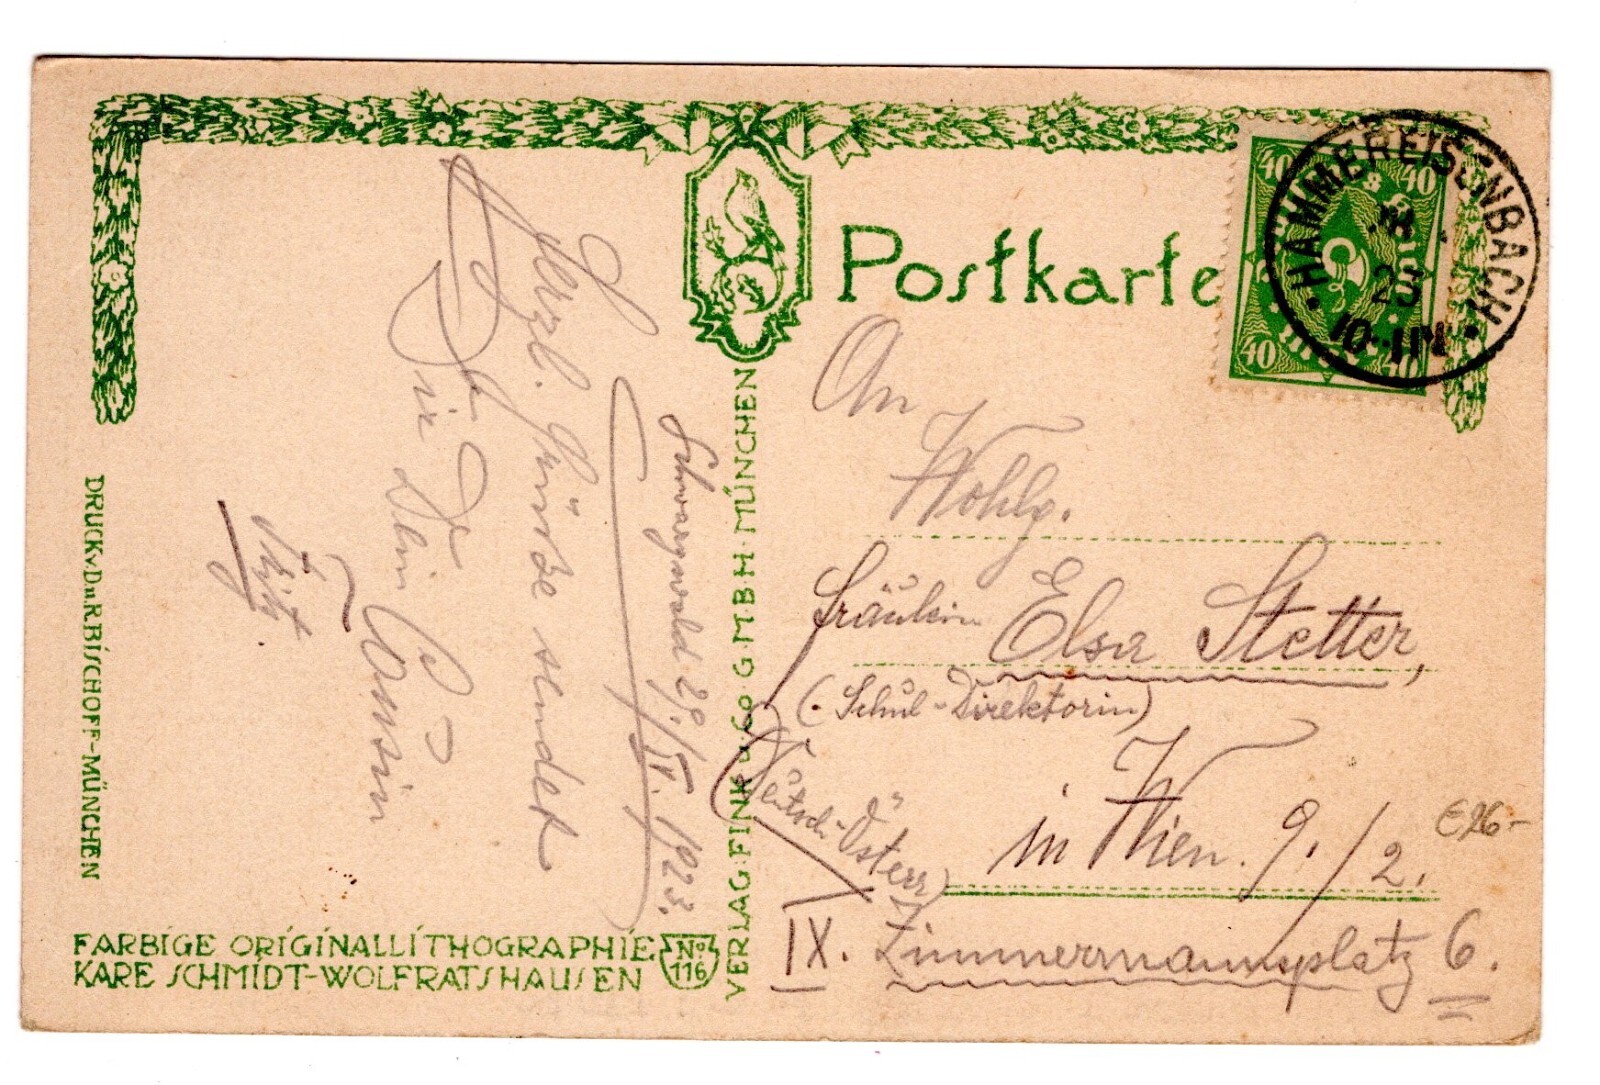 Postkarte
40 40
40 40
HAMMEREISENBACH
23
10-11N
Schwarzwald 29./IV. 1923.
Herzl. Grüsse sendet
Dir Dein Cousin
An
Wohlg.
Fräulein Elsa Stetter,
(Schul-Direktorin)
in Wien. 9./2.
(Deutsch-Österr.)
IX. Zimmermannsplatz 6.
€26-
VERLAG: FINK u. Co G·M·B·H· MÜNCHEN
DRUCK v. D. u. R. BISCHOFF-MÜNCHEN
FARBIGE ORIGINALLITHOGRAPHIE
KARE SCHMIDT-WOLFRATSHAUSEN
No.
116